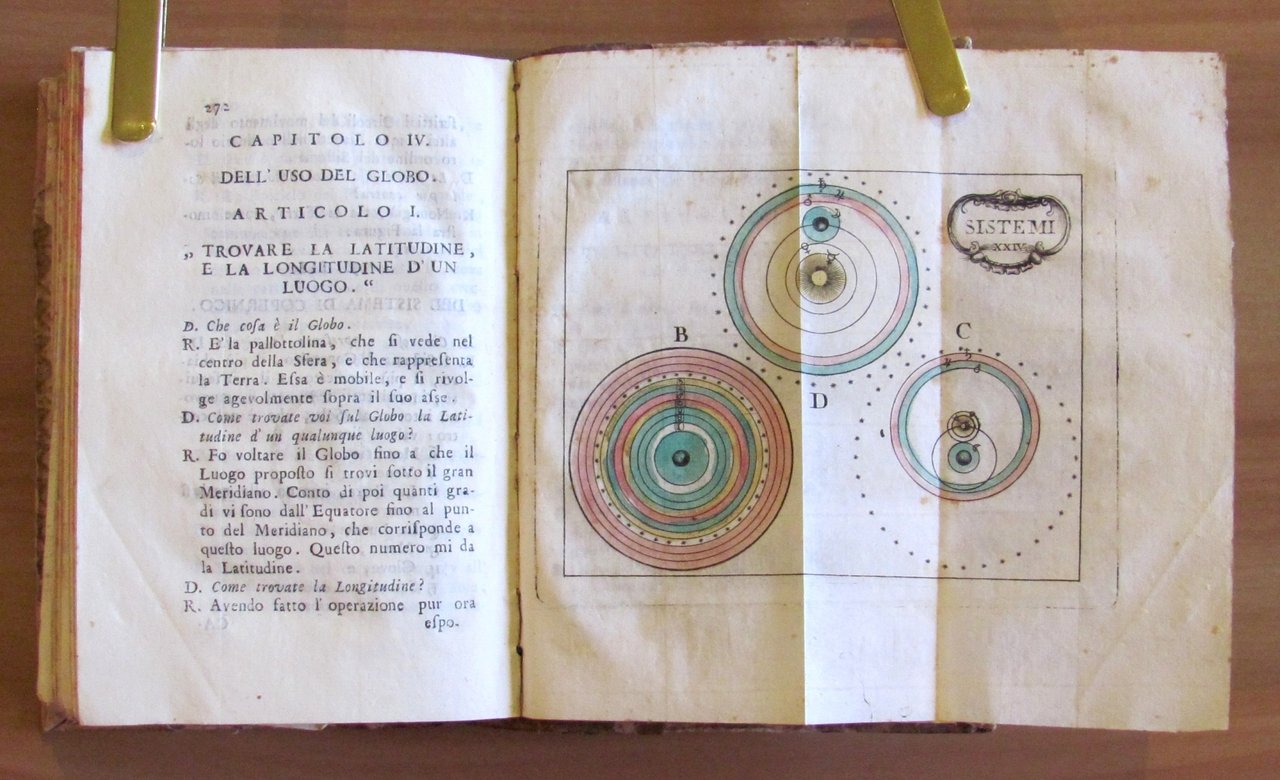 272
CAPITOLO IV.
DELL' USO DEL GLOBO.
ARTICOLO I.
„ TROVARE LA LATITUDINE,
E LA LONGITUDINE D'UN
LUOGO. “
D. Che coſa è il Globo.
R. E' la pallottolina, che ſi vede nel
centro della Sfera, e che rappreſenta
la Terra. Eſſa è mobile, e ſi rivol-
ge agevolmente ſopra il ſuo aſſe.
D. Come trovate voi ſul Globo la Lati-
tudine d' un qualunque luogo?
R. Fo voltare il Globo fino a che il
Luogo propoſto ſi trovi ſotto il gran
Meridiano. Conto di poi quanti gra-
di vi ſono dall' Equatore fino al pun-
to del Meridiano, che corriſponde a
queſto luogo. Queſto numero mi da
la Latitudine.
D. Come trovate la Longitudine?
R. Avendo fatto l' operazione pur ora
eſpo-
SISTEMI
XXIV.
B
C
D